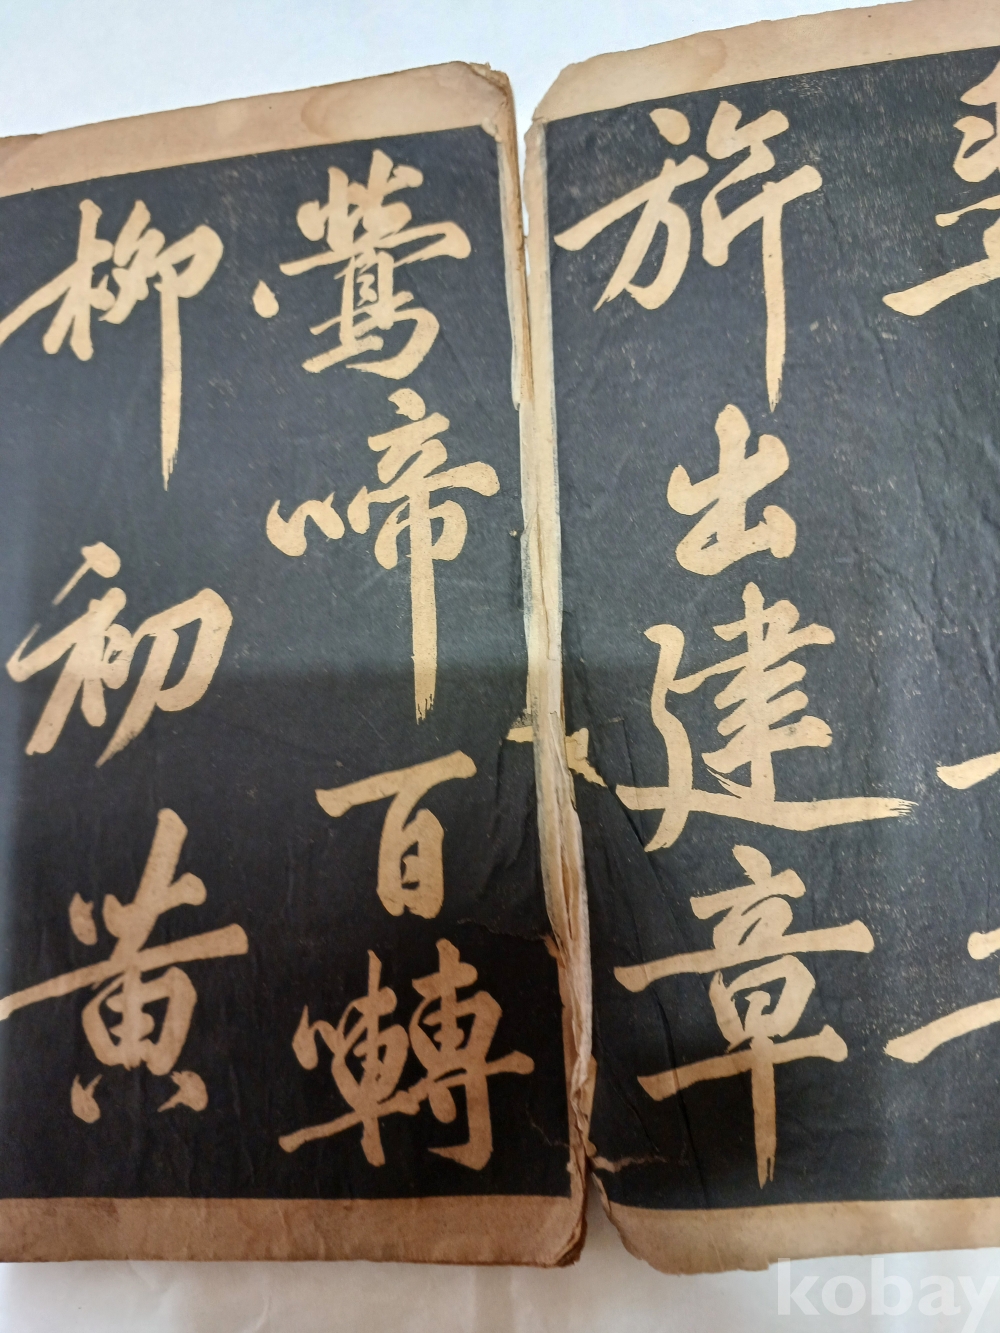 旂出建章
鶯啼百囀
柳初黄
kobay